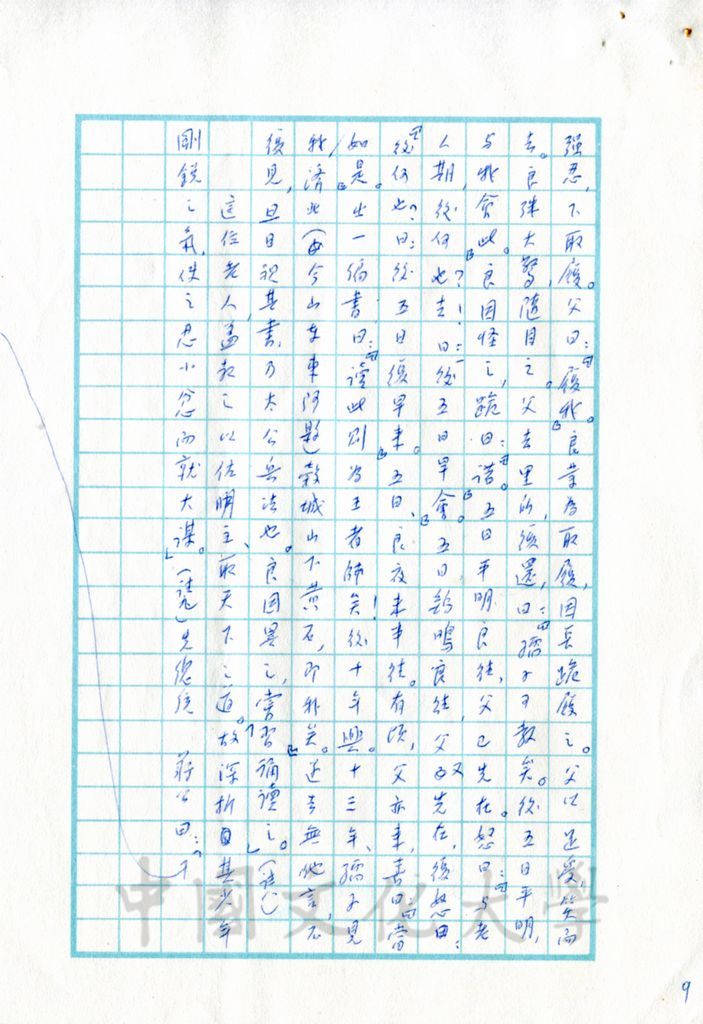 強忍,下取履。父曰:『履我。』良業為取履,因長跪履之。父以足受,笑而
去。良殊大驚,隨目之。父去里所,復還,曰:『孺子可教矣。後五日平明,
與我會此。』良因怪之,跪曰:『諾。』五日平明良往,父已先在。怒曰:『與老
人期,後何也?去!曰:『後五日早會。』五日鷄鳴良往,父又先在,復怒曰:
『後何也?曰:後五日復早來。』五日,良夜未半往。有頃,父亦來,喜曰:『當
如是。』出一編書,曰:『讀此則為王者師矣!後十年興。十三年、孺子見
我,濟北(今山東東阿縣)穀城山下黃石,即我矣。』遂去無他言,不
復見,旦日視其書,乃太公兵法也。良因異之,常習誦讀之。」(註)
這位老人,蓋教之以佐明主、取天下之道。故「深折其少年
剛銳之氣,使之忍小忿而就大謀。」(註九)先總統 蔣公曰:「不
9
中國文化大學